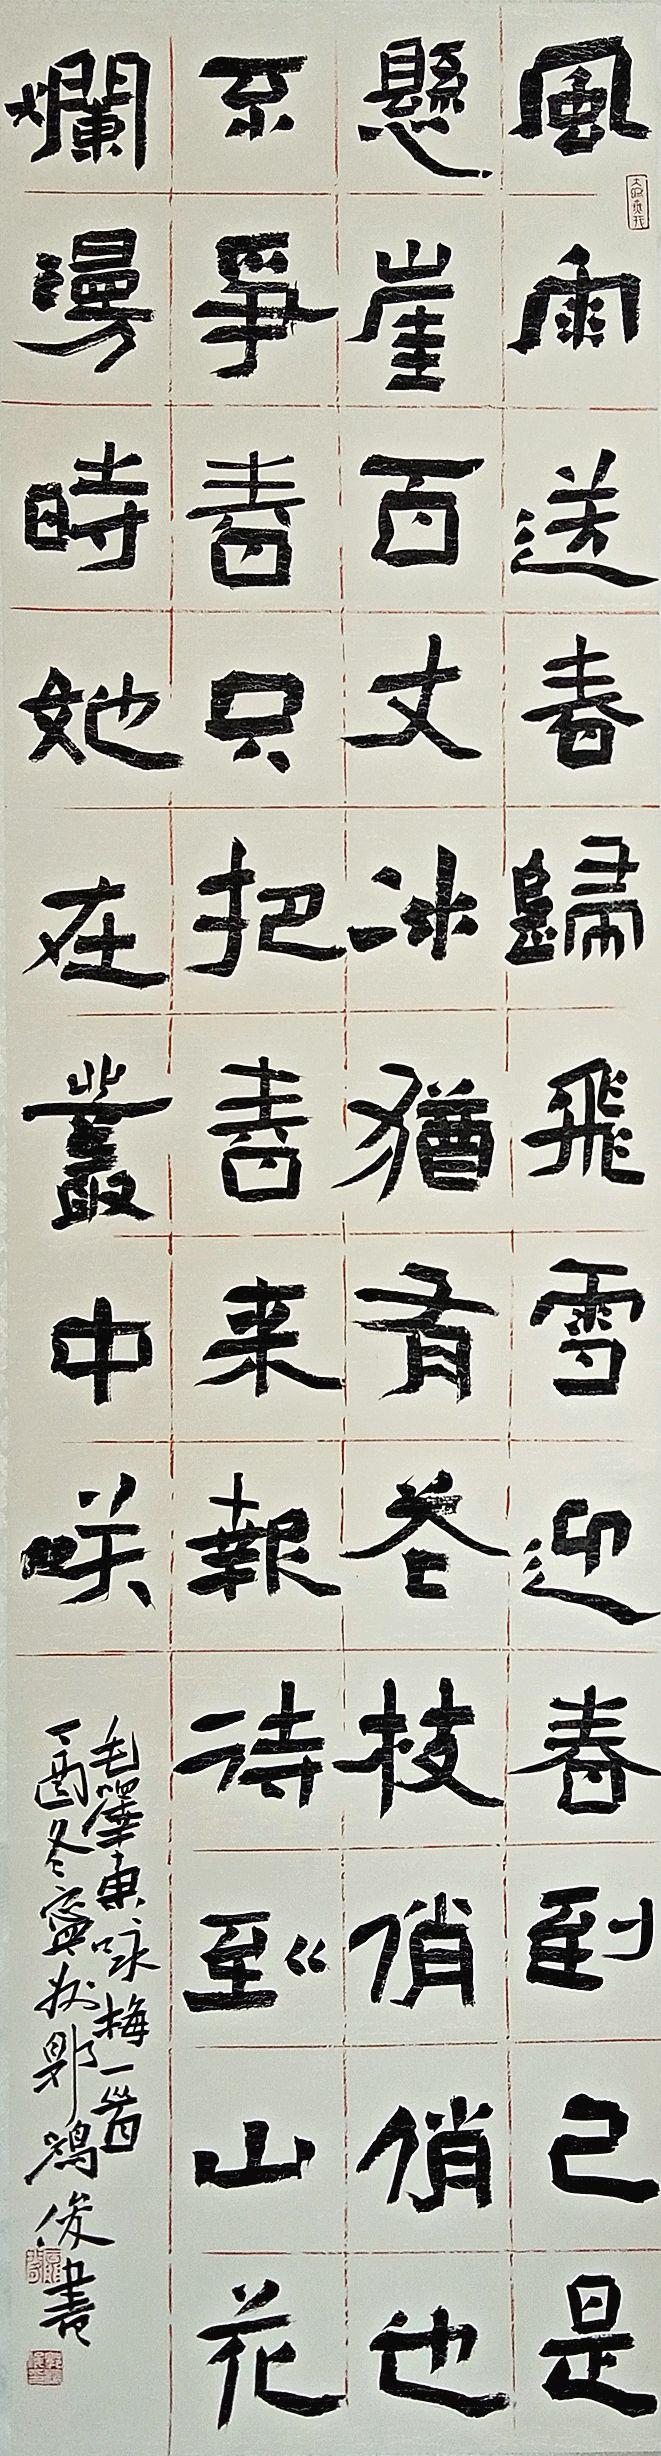 風雨送春歸飛雪迎春到已是
懸崖百丈冰猶有花枝俏俏也
不爭春只把春来報待到山花
爛漫時她在叢中咲
毛澤東咏梅一首
丁酉冬鴻俊書